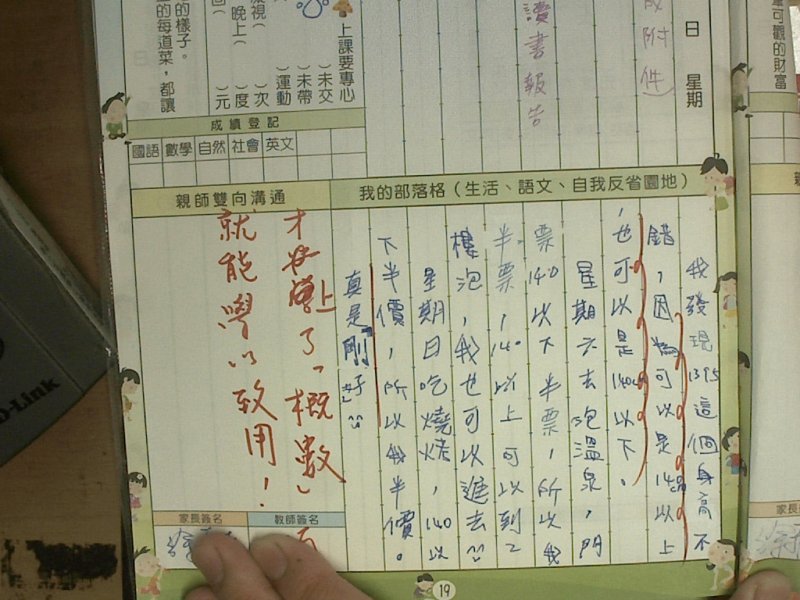 可觀的財富
日 星期
附件)
讀書報告
上課要專心
( )未交
( )未帶
( )運動
( )次
( )度
( )元
晚上(
的樣子。
的每道菜,都讓
成績登記
國語 數學 自然 社會 英文
我的部落格(生活、語文、自我反省園地)
我發現139.5這個身高不
錯,因為可以是140以上
,也可以是140以下。
星期六去泡溫泉,門
票140以下半票,所以我
半票,140以上可以到2
樓泡,我也可以進去
星期日吃燒烤,140以
下半價,所以我半價。
真是「剛好」
親師雙向溝通
才學上了「概數」
就能學以致用!
家長簽名
教師簽名
19
D-Link